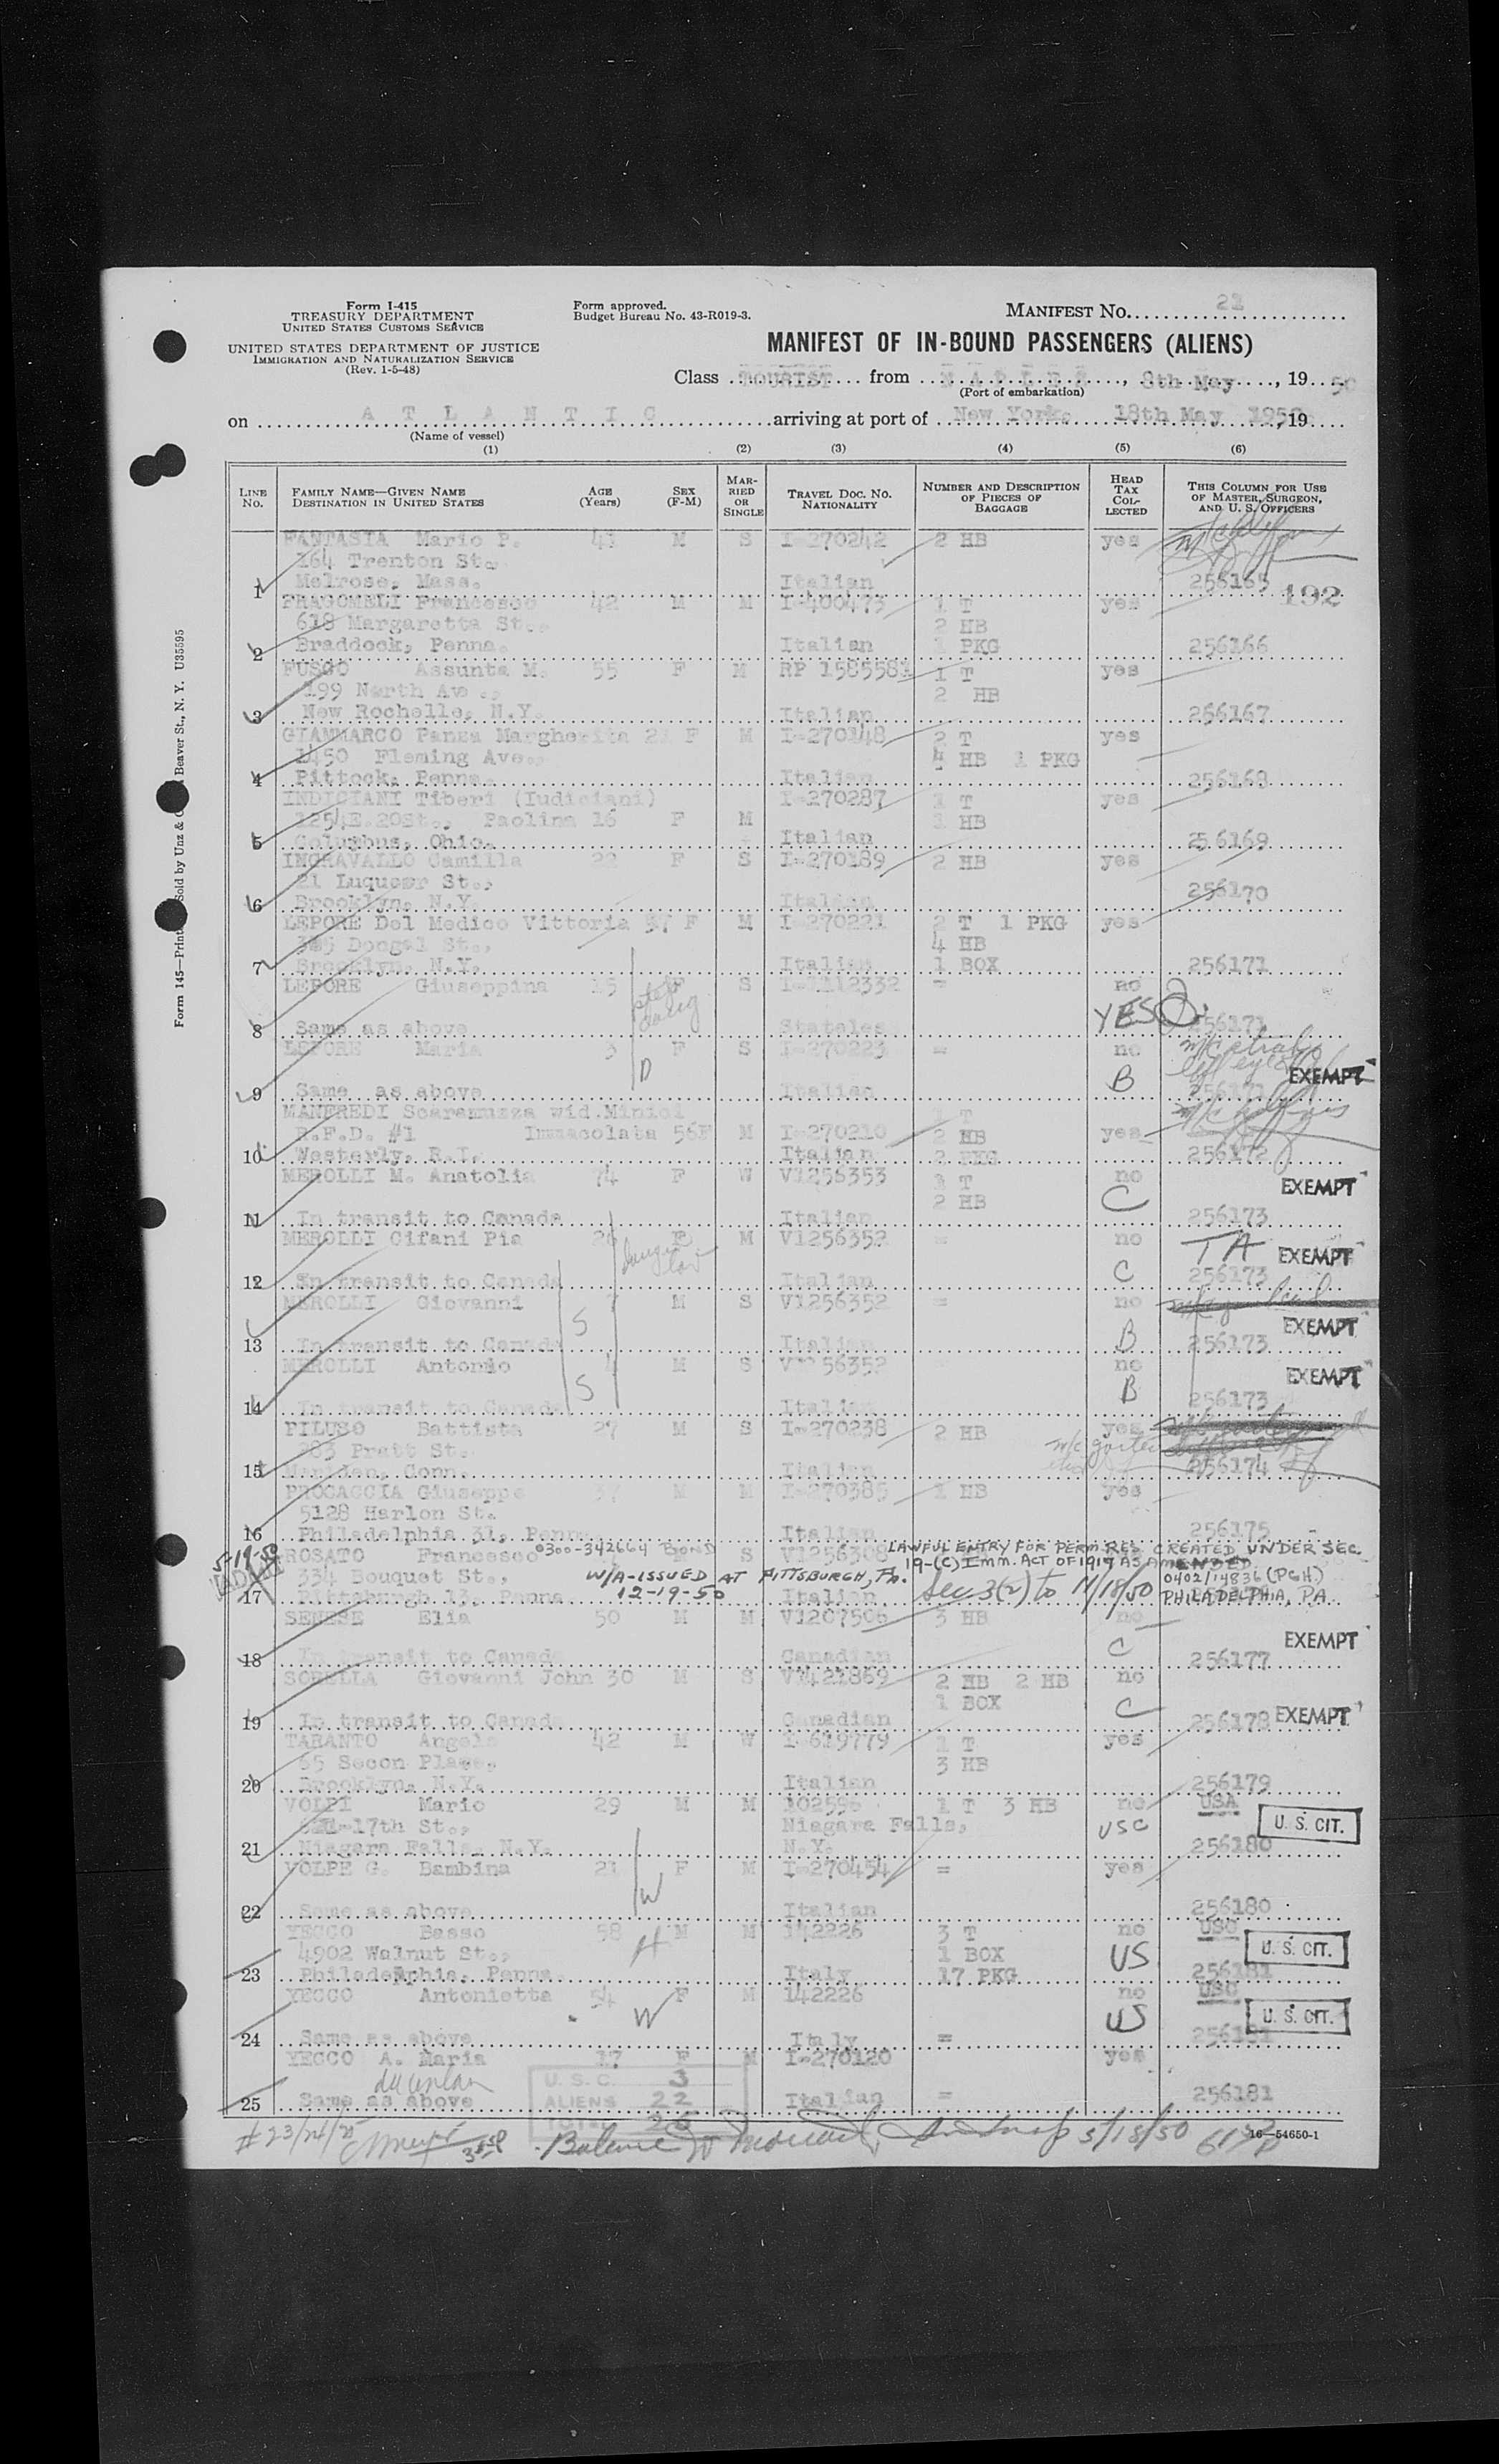 Form I-415
TREASURY DEPARTMENT
UNITED STATES CUSTOMS SERVICE
UNITED STATES DEPARTMENT OF JUSTICE
IMMIGRATION AND NATURALIZATION SERVICE
(Rev. 1-5-48)
Form approved.
Budget Bureau No. 43-R019-3.
MANIFEST No. 21
MANIFEST OF IN-BOUND PASSENGERS (ALIENS)
Class TOURIST from NAPLES, 8th May, 19 50
(Port of embarkation)
on ATLANTIC arriving at port of New York, 18th May 1950, 19
(Name of vessel)
(1) (2) (3) (4) (5) (6)
LINE No. FAMILY NAME—GIVEN NAME DESTINATION IN UNITED STATES AGE (Years) SEX (F-M) MARRIED OR SINGLE TRAVEL DOC. NO. NATIONALITY NUMBER AND DESCRIPTION OF PIECES OF BAGGAGE HEAD TAX COLLECTED THIS COLUMN FOR USE OF MASTER, SURGEON, AND U. S. OFFICERS
FANTASIA Mario P. 41 M S I-270242 2 HB yes
164 Trenton St.
1 Melrose, Mass. Italian 256165 192
FRAGOMELI Francesco 42 M M I-400473 1 T yes
618 Margaretta St. 2 HB
2 Braddock, Penna. Italian 1 PKG 256166
FUSCO Assunta M. 55 F M RP 1585581 1 T yes
199 North Ave., 2 HB
3 New Rochelle, N.Y. Italian 256167
GIAMMARCO Panza Margherita 21 F M I-270148 2 T yes
1450 Fleming Ave., 4 HB 1 PKG
4 Pittock, Penna. Italian 256168
INDICIANI Tiberi (Iudiciani) I-270287 1 T yes
1254E.20St., Paolina 16 F M 1 HB
5 Columbus, Ohio. Italian 256169
INGRAVALLO Camilla 22 F S I-270189 2 HB yes
21 Luquer St.,
6 Brooklyn, N.Y. Italian 256170
LEPORE Del Medico Vittoria 37 F M I-270221 2 T 1 PKG yes
St., 4 HB
7 Brooklyn, N.Y. Italian 1 BOX 256171
LEPORE Giuseppina 15 F S I-1112332 = no
step daug YES
8 Same as above Stateless 256171
LEPORE Maria 3 F S I-270223 = no
D B EXEMPT
9 Same as above Italian 256171
MANFREDI Scaramuzza wid.Minici 1 T
R.F.D. #1 Immacolata 56F M I-270210 2 HB yes
10 Westerly, R.I. Italian 2 PKG 256172
MEROLLI M. Anatolia 74 F W V1256353 1 T no
2 HB C EXEMPT
11 In transit to Canada Italian 256173
MEROLLI Cifani Pia 26 F M V1256352 = no
TA EXEMPT
12 In transit to Canada Italian C 256173
MEROLLI Giovanni 7 M S V1256352 = no
S B EXEMPT
13 In transit to Canada Italian 256173
MEROLLI Antonio 4 M S 56352 no
S B EXEMPT
14 In transit to Canada Italian 256173
PILUSO Battista 27 M S I-270238 2 HB yes
283 Pratt St.
15 Meriden, Conn. Italian 256174
PROCACCIA Giuseppe 37 M M I-270385 1 HB yes
5128 Harlon St.
16 Philadelphia 31, Penna. Italian 256175
ROSATO Francesco 0300-342664 BOND S V1256308 LAWFUL ENTRY FOR PERM RES CREATED UNDER SEC
5-19-50 19-(C) IMM. ACT OF 1917 AS AMENDED
334 Bouquet St., W/A-ISSUED AT PITTSBURGH, PA. 0402/14836 (PGH)
17 Pittsburgh 13, Penna. 12-19-50 Italian Sec 3(2) to 11/18/50 PHILADELPHIA, PA
SENESE Elia 50 M M V1207506 3 HB no
C EXEMPT
18 In transit to Canada Canadian 256177
SORELLA Giovanni John 30 M S V1421869 2 HB 2 HB no
1 BOX C
19 In transit to Canada Canadian 256178 EXEMPT
TARANTO Angelo 42 M W I-619779 1 T yes
65 Secon Place, 3 HB
20 Brooklyn, N.Y. Italian 256179
VOLPI Mario 29 M M 102596 1 T 3 HB no USA
17th St., Niagara Falls, USC U. S. CIT.
21 Niagara Falls, N.Y. N.Y. 256180
VOLPE G. Bambina 21 F M I-270454 = yes
W
22 Same as above Italian 256180
YECCO Basso 58 M M 142226 3 T no USC
4902 Walnut St., H 1 BOX US U. S. CIT.
23 Philadelphia, Penna. Italy 17 PKG 256181
YECCO Antonietta 54 F M 142226 no USC
W US U. S. CIT.
24 Same as above Italy = 256181
YECCO A. Maria 17 F M I-270120 yes
25 Same as above Italian = 256181
U.S.C. 3
ALIENS 22
TOTAL 25
#23/24/25 5/18/50
16—54650-1
Form 145—Print Sold by Unz & Beaver St., N. Y. U35595